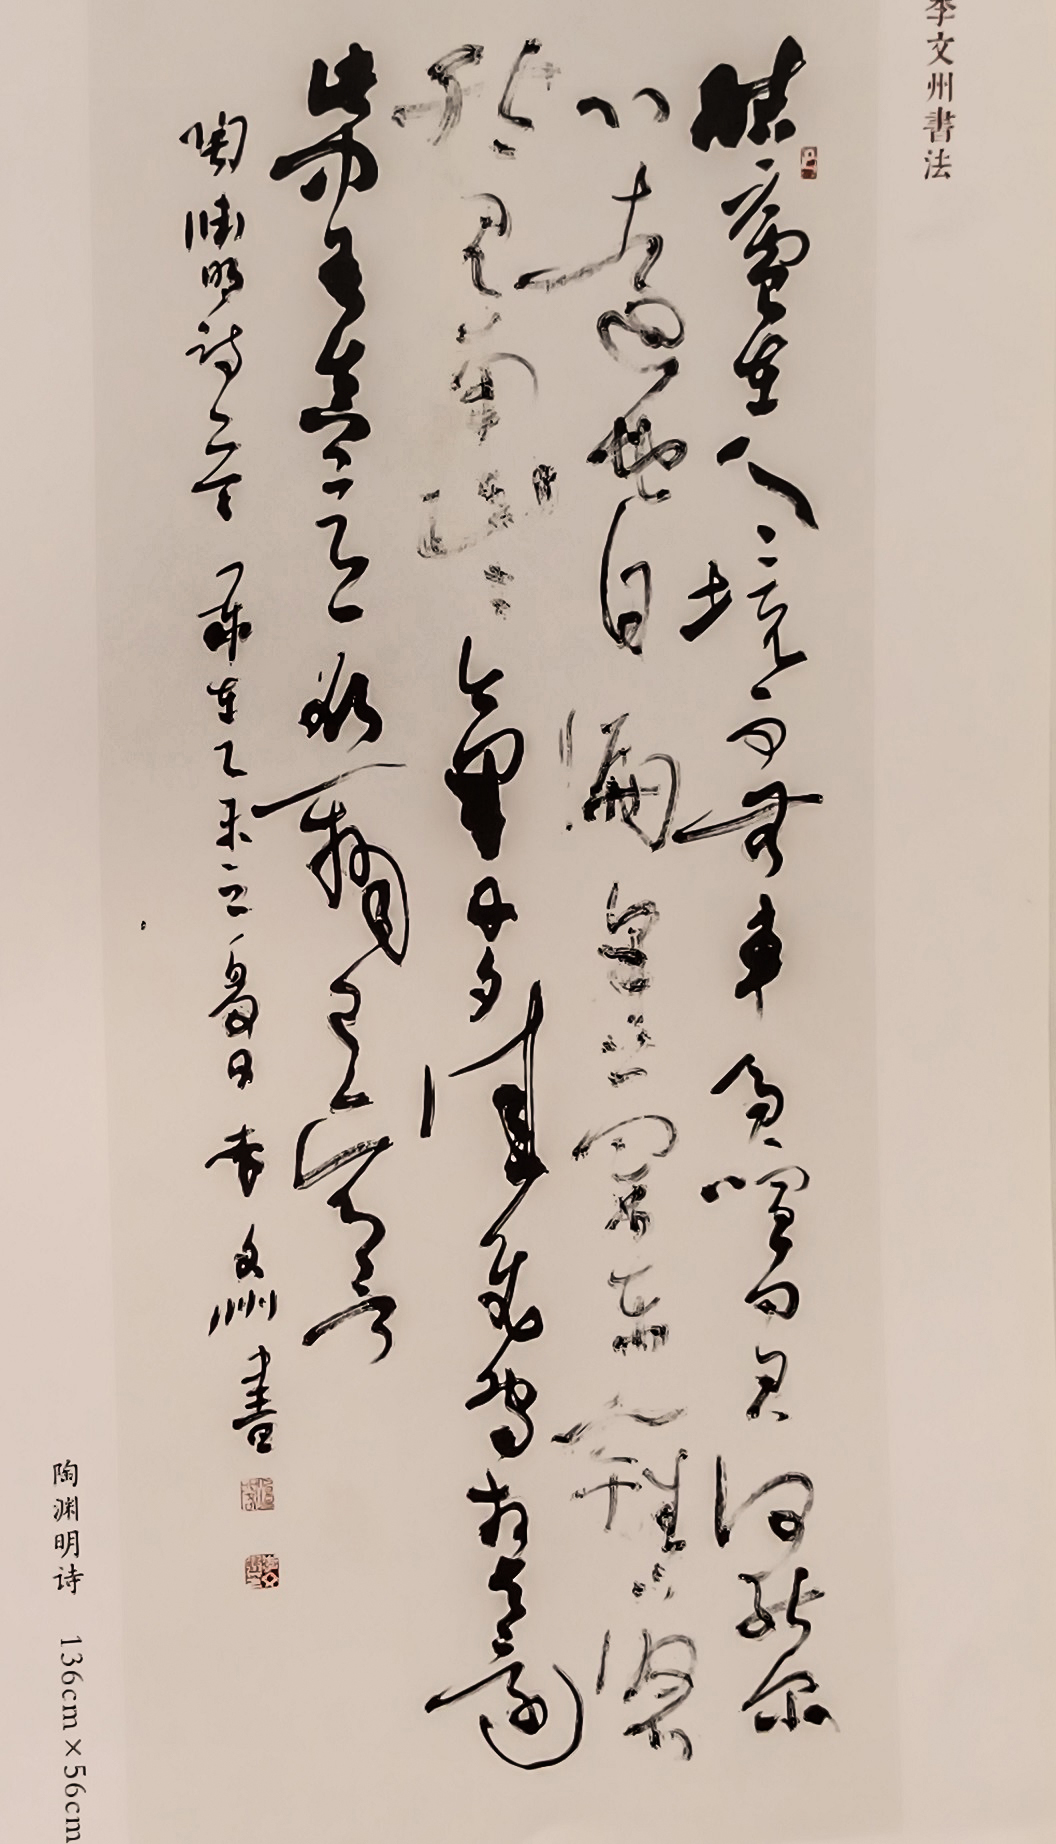 李文州書法
結廬在人境而無車馬喧問君何能爾
心遠地自偏采菊東籬下悠
然見南山〻氣日夕佳飛鳥相與還
此中有真意欲辨已忘言
陶淵明詩一首 歲在乙未立夏日李文州書
陶渊明诗 136cm×56cm